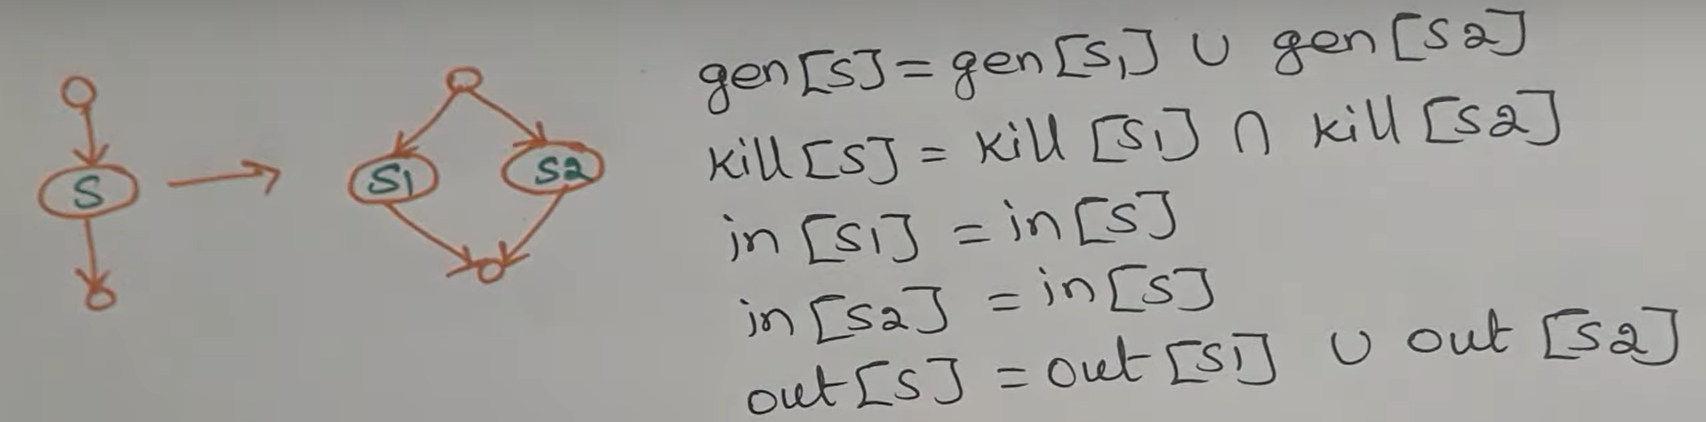 S
S1
S2
gen[S] = gen[S1] ∪ gen[S2]
kill[S] = kill[S1] ∩ kill[S2]
in[S1] = in[S]
in[S2] = in[S]
out[S] = out[S1] ∪ out[S2]